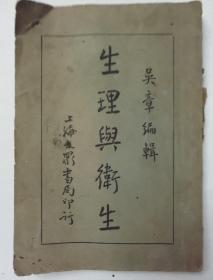 吴章編輯
生理與衛生
上海文影書局印行